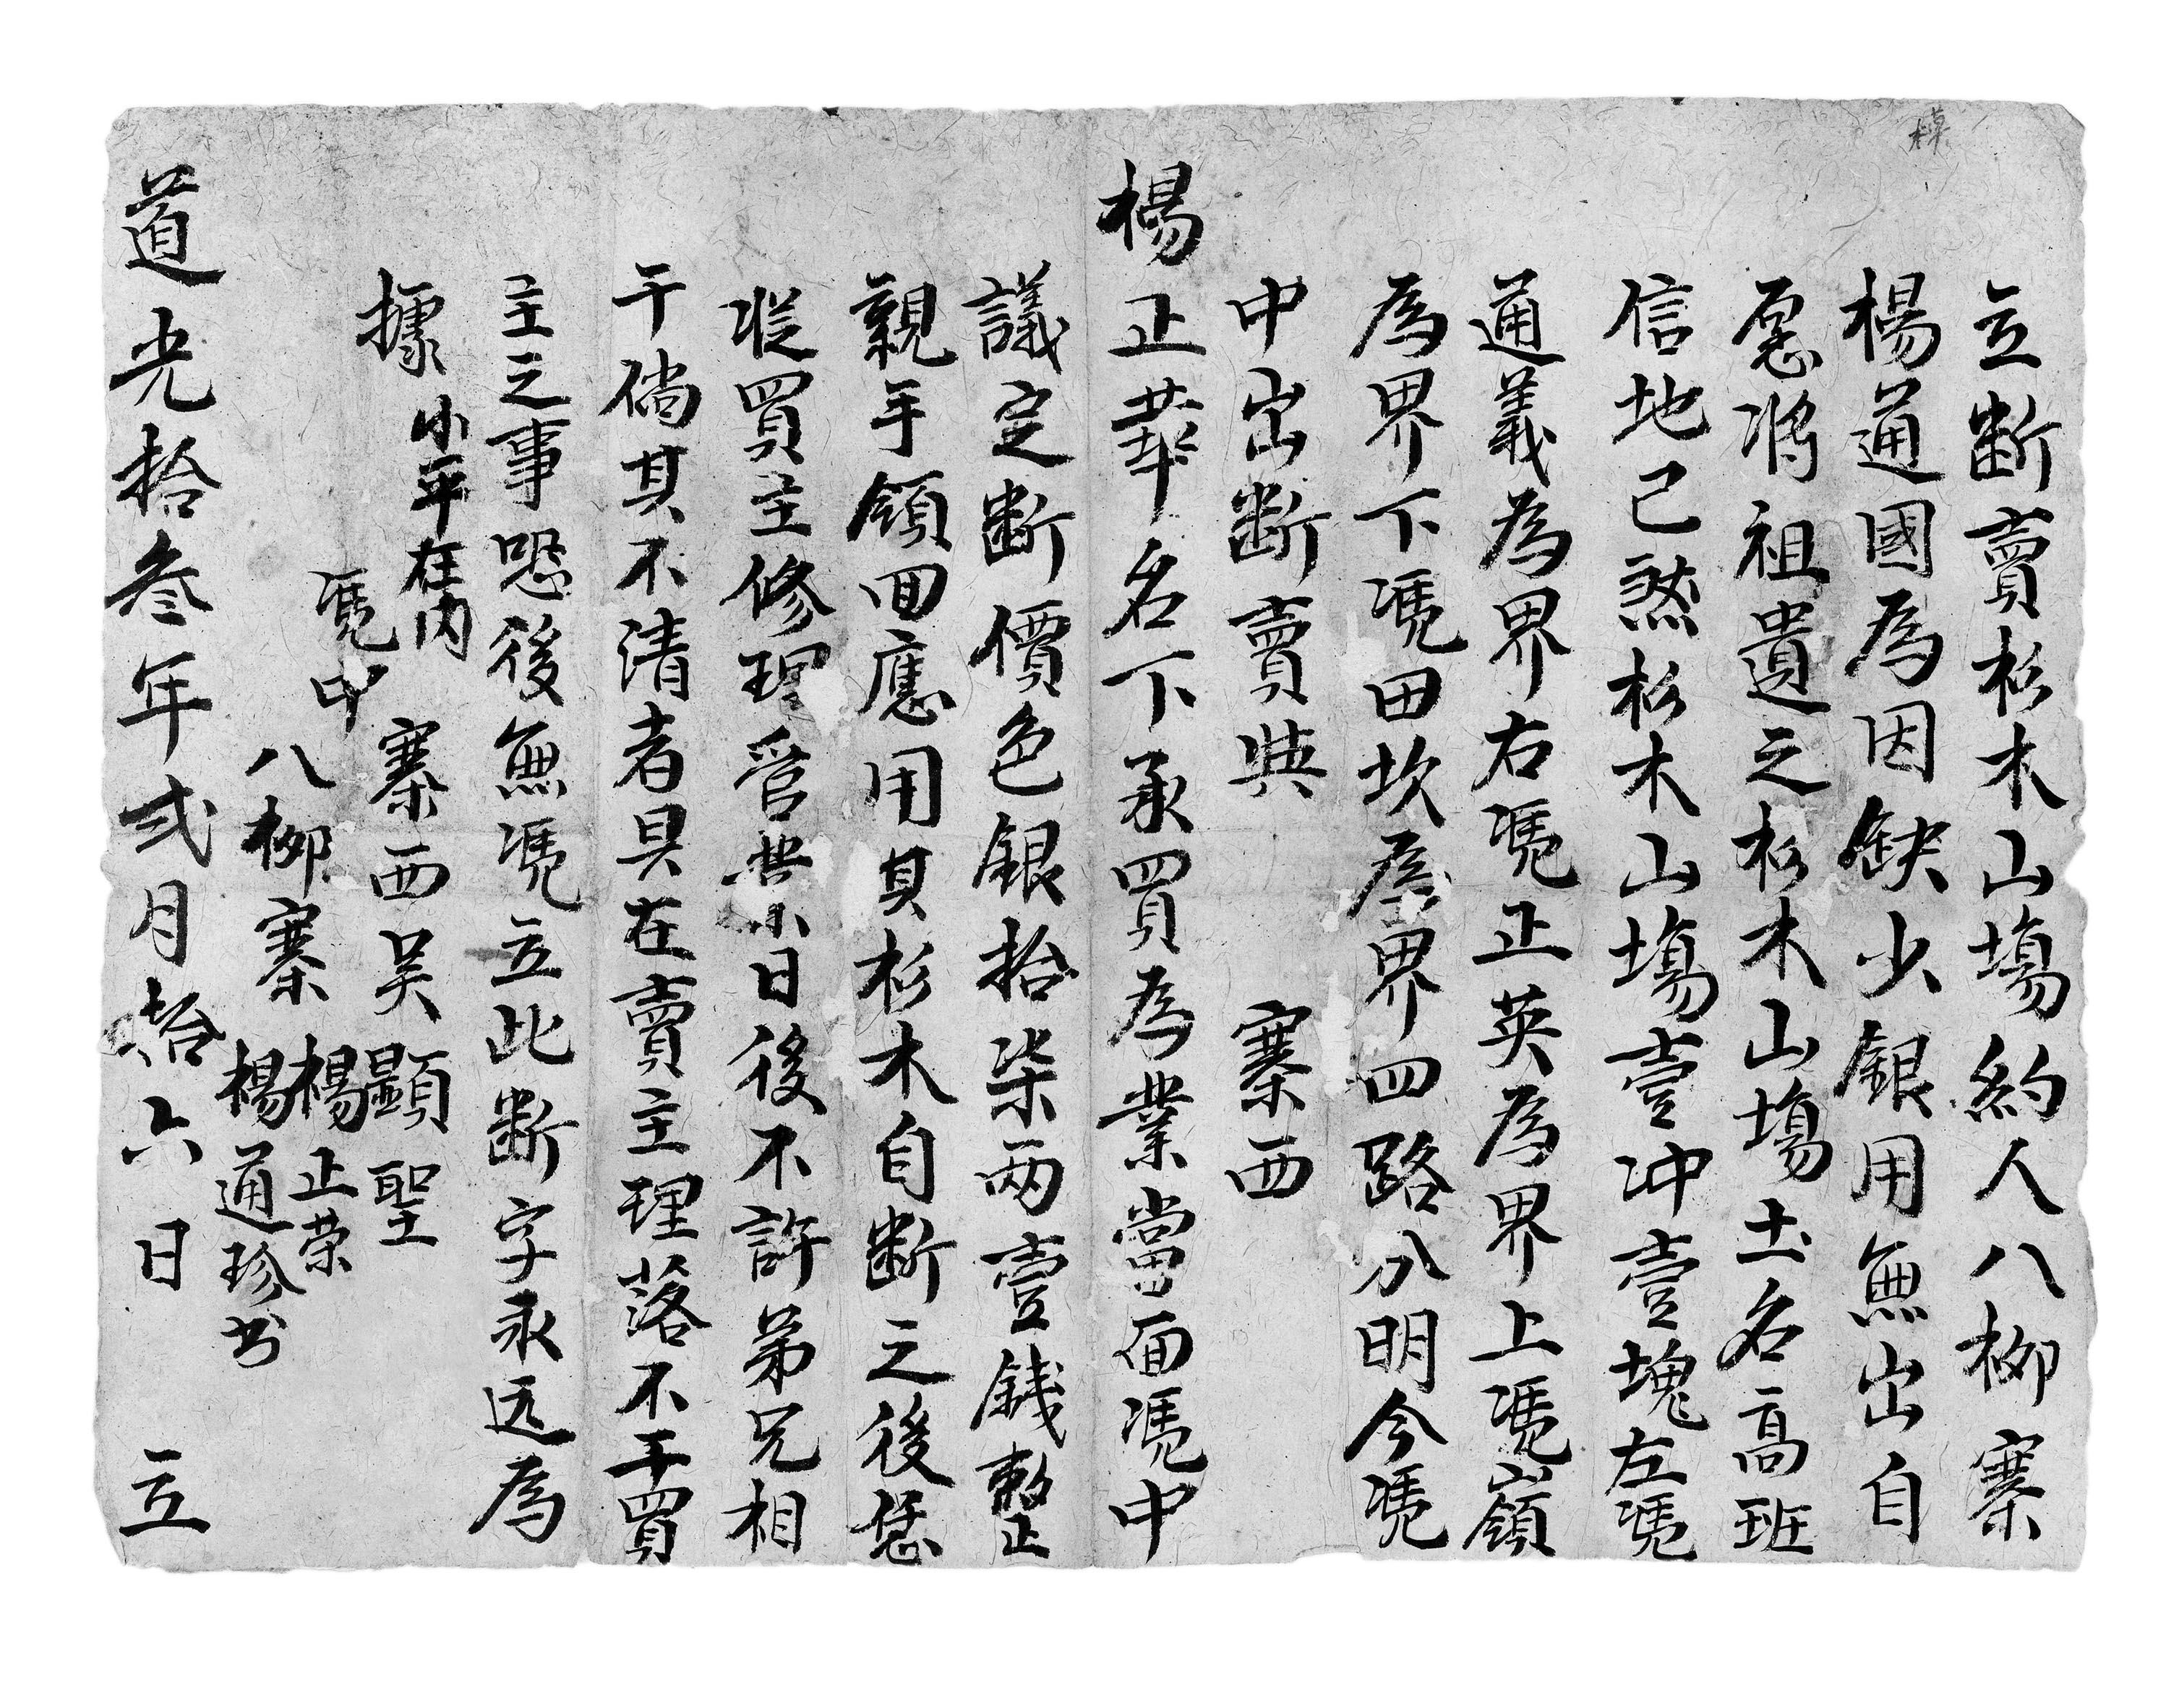 立断賣杉木山塲約人八柳寨
楊通國為因缺少銀用無出自
愿將祖遺之杉木山塲土名高班
信地己煞杉木山塲壹冲壹塊左凴
通義為界右凴正英為界上凴嶺
為界下凴田坎為界四路分明今凴
中出断賣與 寨西
楊正華名下承買為業當面凴中
議定断價色銀拾柒两壹錢整
親手領回應用其杉木自断之後恁
從買主修理管業日後不許弟兄相
干倘其不清者具在賣主理落不干買
主之事恐後無凴立此断字永远為
據 小平在内
凴中 寨西吴顯聖
八柳寨 楊正荣
楊通珍书
道光拾叁年弍月拾六日 立